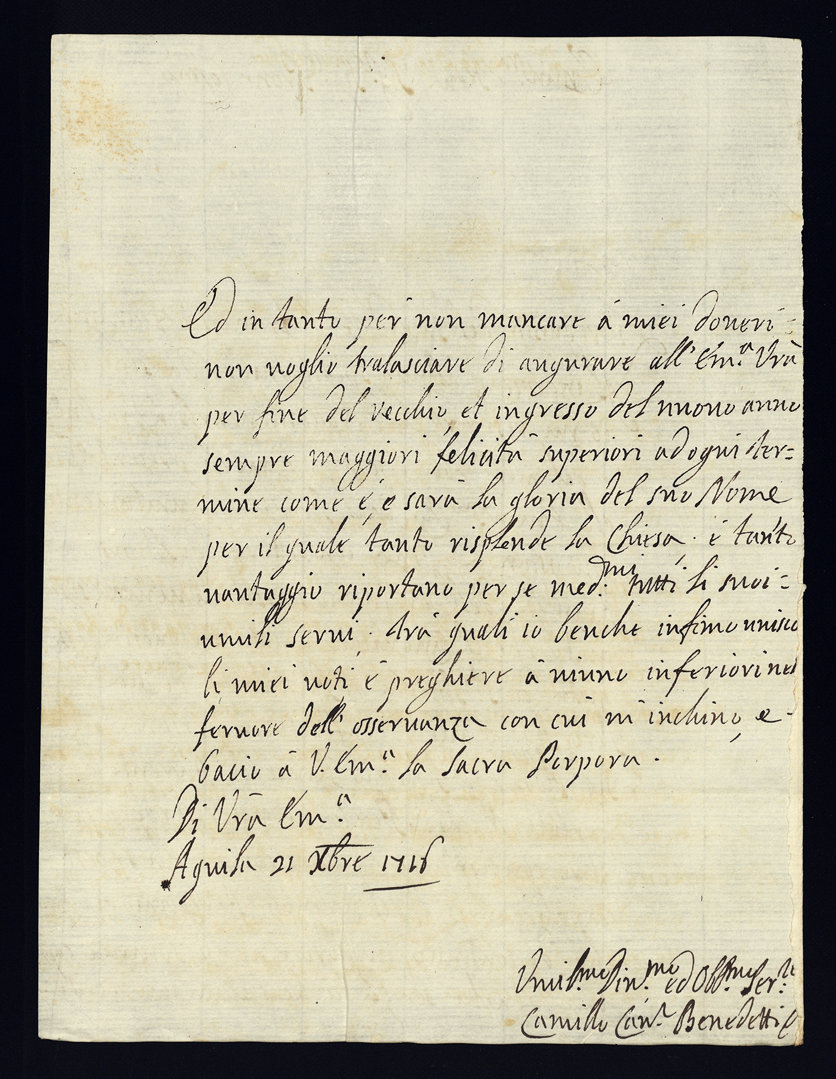 Ed in tanto per non mancare á miei doueri =
non uoglio tralasciare di augurare all' Em.ª Vrã
per fine del vecchio, et ingresso del nuouo anno
sempre maggiori felicità superiori ad ogni ter=
mine come é, e sarà la gloria del suo Nome
per il quale tanto risplende la Chiesa, é tanto
uantaggio riportano per se med.mi tutti li suoi =
umili serui, trà quali io benche infimo unisco
li miei uoti é preghiere à niuno inferiori nel
feruore dell' osseruanza con cui m'inchino, e -
bacio à V. Em.ª la Sacra Porpora.
Di Vrã Em.ª
Aquila 21 Xbre 1716
Umil.mo Diu.mo ed Obb.mo Ser.re
Camillo Can.co Benedetti